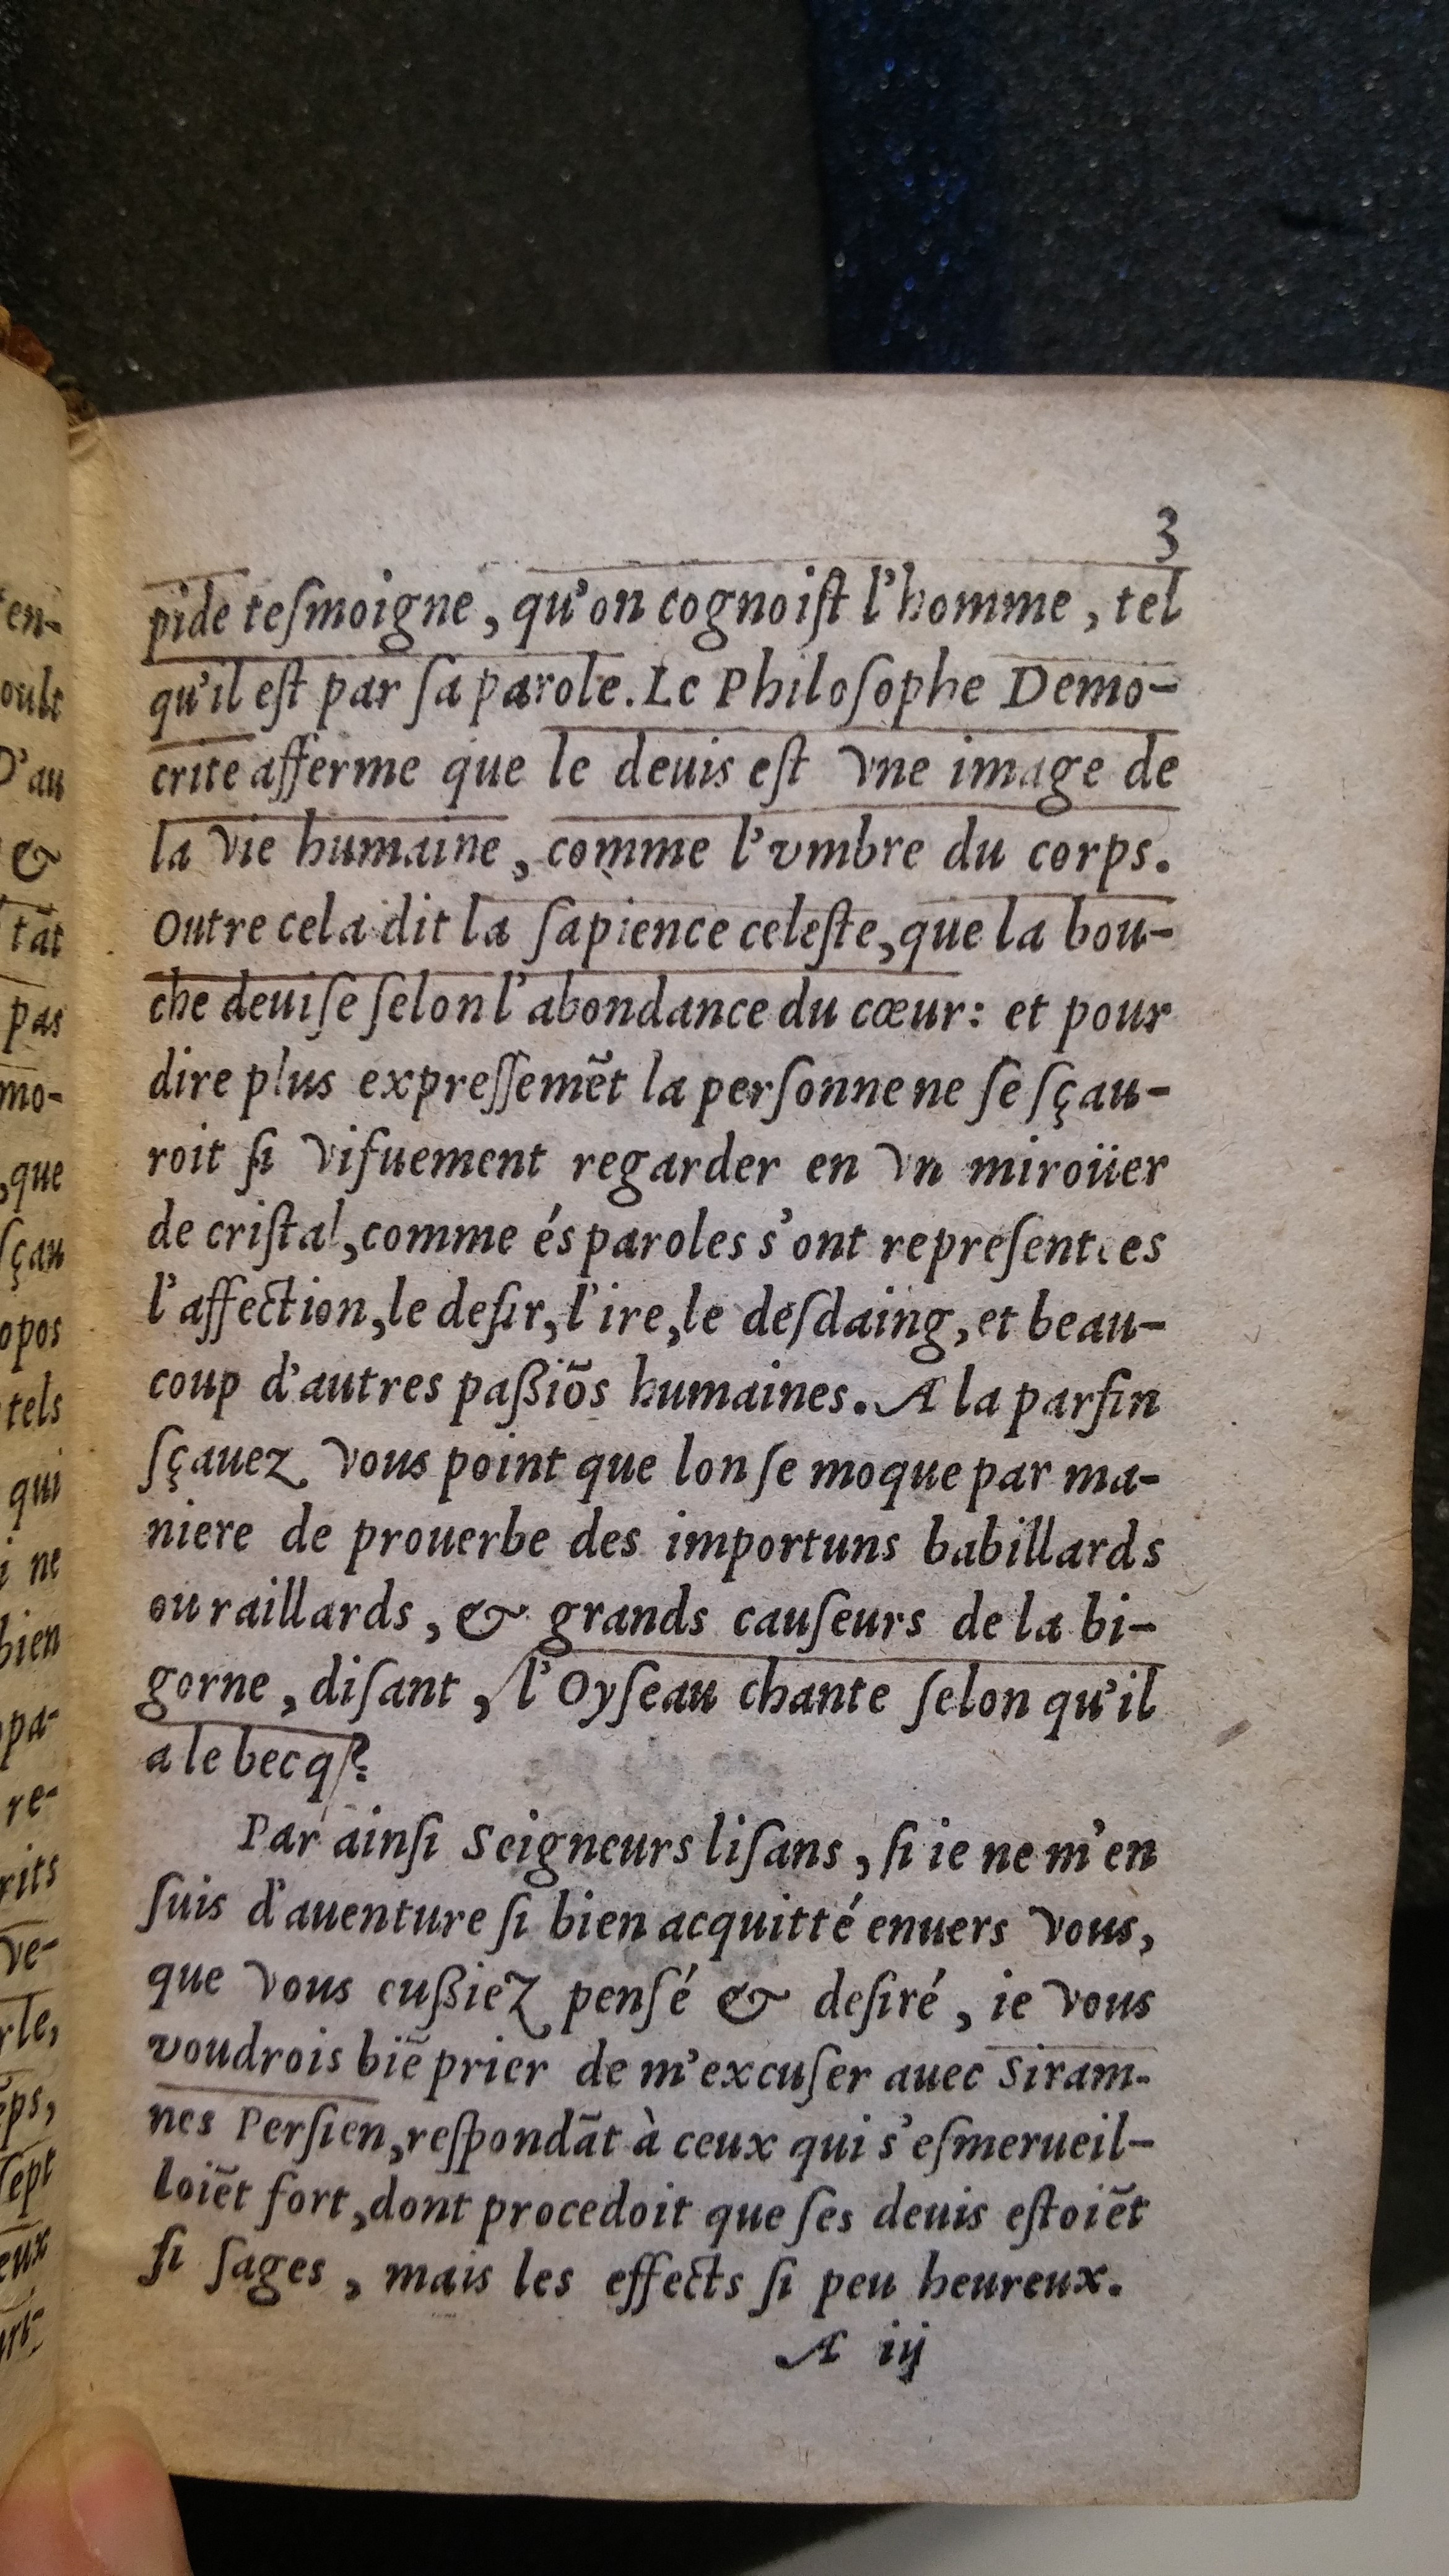 3
pide teſmoigne, qu'on cognoiſt l'homme, tel
qu'il eſt par ſa parole. Le Philoſophe Demo-
crite afferme que le deuis eſt vne image de
la vie humaine, comme l'vmbre du corps.
Outre cela dit la ſapience celeſte, que la bou-
che deuiſe ſelon l'abondance du cœur: et pour
dire plus expreſſemẽt la perſonne ne ſe ſçau-
roit ſi vifuement regarder en vn miroüer
de criſtal, comme és paroles s'ont repreſentees
l'affection, le deſir, l'ire, le deſdaing, et beau-
coup d'autres paßiõs humaines. A la parfin
ſçauez vous point que lon ſe moque par ma-
niere de prouerbe des importuns babillards
ou raillards, & grands cauſeurs de la bi-
gorne, diſant, l'Oyſeau chante ſelon qu'il
a le becq?
Par ainſi Seigneurs liſans, ſi ie ne m'en
ſuis d'auenture ſi bien acquitté enuers vous,
que vous eußiez penſé & deſiré, ie vous
voudrois biẽ prier de m'excuſer auec Siram-
nes Perſien, reſpondãt à ceux qui s'eſmerueil-
loiẽt fort, dont procedoit que ſes deuis eſtoiẽt
ſi ſages, mais les effects ſi peu heureux.
A iij
en-
oult
D'au
&
tãt
pas
mo-
,que
ſçau
opos
tels
qui
i ne
bien
pa-
re-
rits
ve-
rle,
ẽps,
ſept
eux